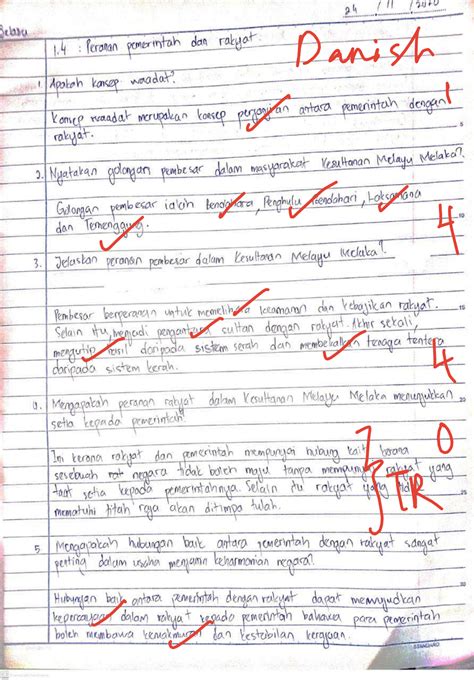 24 / 11 / 2020
Selasa
1.4 : Peranan pemerintah dan rakyat.
Danish
1. Apakah konsep waadat?
Konsep waadat merupakan konsep perjanjian antara pemerintah dengan
rakyat.
1
2. Nyatakan golongan pembesar dalam masyarakat Kesultanan Melayu Melaka?
Golongan pembesar ialah Bendahara, Penghulu Bendahari, Laksamana
dan Temenggung.
4
3. Jelaskan peranan pembesar dalam Kesultanan Melayu Melaka?
Pembesar berperanan untuk memelihara keamanan dan kebajikan rakyat.
Selain itu, menjadi pengantara sultan dengan rakyat. Akhir sekali,
mengutip hasil daripada sistem serah dan membekalkan tenaga tentera
daripada sistem kerah.
4
Mengapakah peranan rakyat dalam Kesultanan Melayu Melaka menunjukkan
setia kepada pemerintah?
Ini kerana rakyat dan pemerintah mempunyai hubung kait kerana
sesebuah negara tidak boleh maju tanpa mempunyai rakyat yang
taat setia kepada pemerintahnya. Selain itu rakyat yang tidak
mematuhi titah raja akan ditimpa tulah.
0
TR
5 Mengapakah hubungan baik antara pemerintah dengan rakyat sangat
penting dalam usaha menjamin keharmonian negara?
Hubungan baik antara pemerintah dengan rakyat dapat mewujudkan
kepercayaan dalam rakyat kepada pemerintah bahawa para pemerintah
boleh membawa kemakmuran dan kestabilan kerajaan.